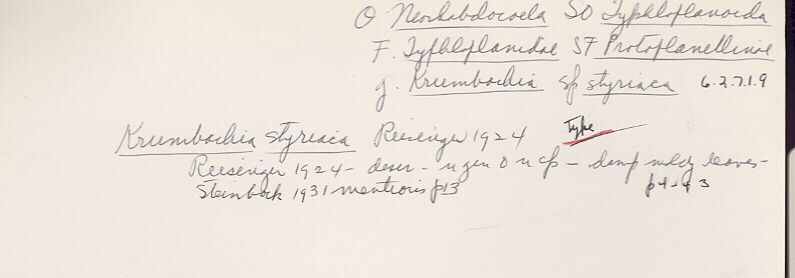 O Neorhabdocoela SO Typhloplanoida
F. Typhloplanidae SF Protoplanellinae
g. Krumbachia sp styriaca 6.2.7.1.9
Krumbachia styriaca Reisinger 1924 Type
Reisinger 1924 - descr - n gen o n sp - damp moldy leaves -
Steinbock 1931 mentions p13 p4-43